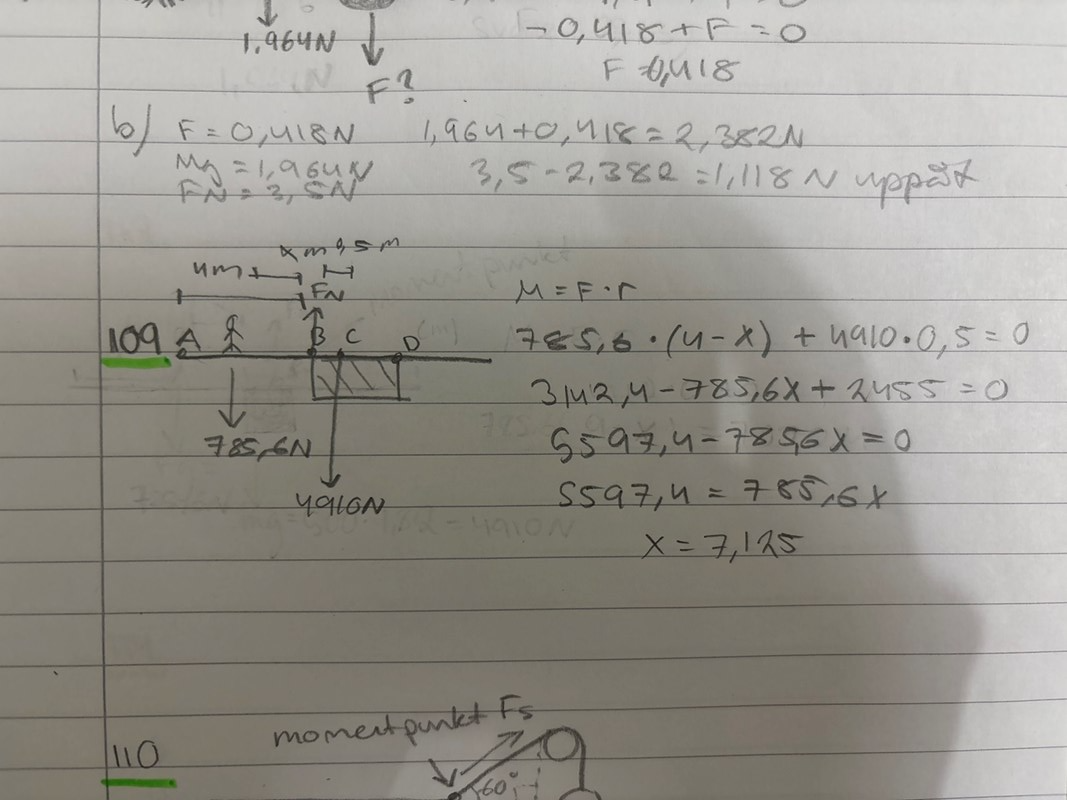 1,964N
F?
- 0,418 + F = 0
F = 0,418
b) F = 0,418N 1,964 + 0,418 = 2,382N
Mg = 1,964N 3,5 - 2,382 = 1,118 N uppåt
FN = 3,5N
x m 0,5 m
4m
FN
M = F · r
109 A B C D 785,6 · (4 - x) + 4910 · 0,5 = 0
3142,4 - 785,6x + 2455 = 0
785,6N 5597,4 - 785,6x = 0
4910N 5597,4 = 785,6x
x = 7,125
momentpunkt Fs
110
60°